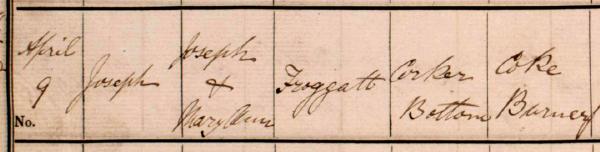 April
9
No.
Joseph
Joseph
&
Mary Ann
Froggatt
Corker
Bottom
Coke
Burner